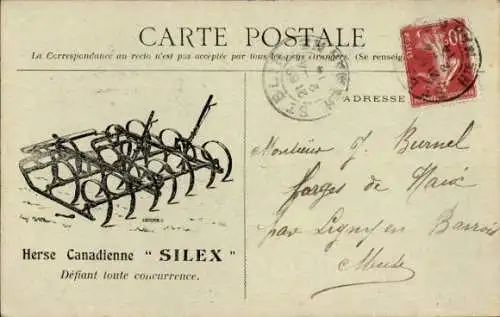 CARTE POSTALE
La Correspondance au recto n'est pas acceptée par tous les pays étrangers. (Se renseign
ADRESSE
Monsieur J. Burnel
forges de Naix
par Ligny en Barrois
Meuse
Herse Canadienne " SILEX "
Défiant toute concurrence.
10
POSTES